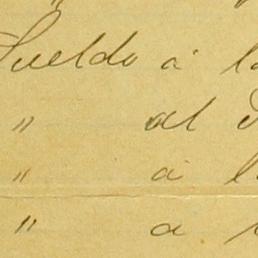 Sueldo á
" al
" á
" á